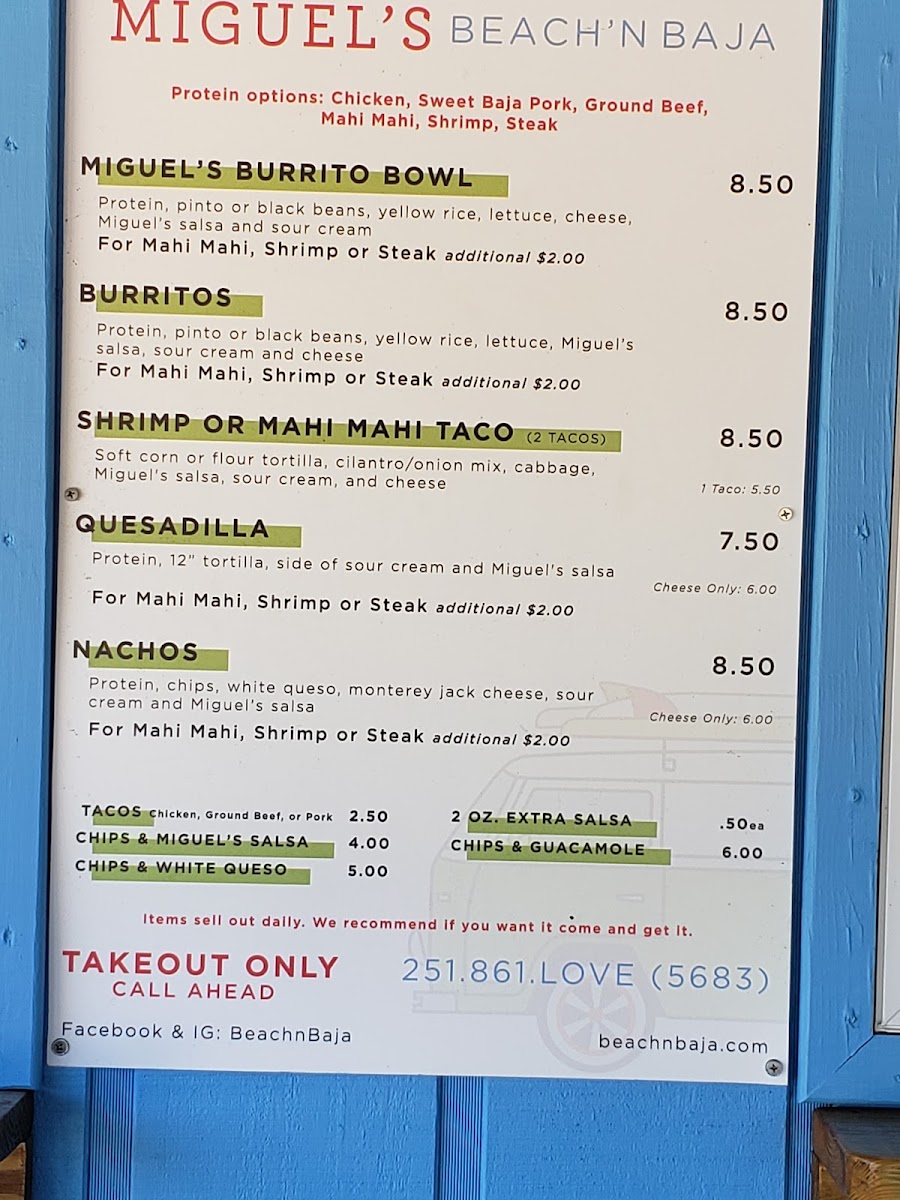 MIGUEL'S BEACH'N BAJA
Protein options: Chicken, Sweet Baja Pork, Ground Beef,
Mahi Mahi, Shrimp, Steak
MIGUEL'S BURRITO BOWL 8.50
Protein, pinto or black beans, yellow rice, lettuce, cheese,
Miguel's salsa and sour cream
For Mahi Mahi, Shrimp or Steak additional $2.00
BURRITOS 8.50
Protein, pinto or black beans, yellow rice, lettuce, Miguel's
salsa, sour cream and cheese
For Mahi Mahi, Shrimp or Steak additional $2.00
SHRIMP OR MAHI MAHI TACO (2 TACOS) 8.50
Soft corn or flour tortilla, cilantro/onion mix, cabbage,
Miguel's salsa, sour cream, and cheese
1 Taco: 5.50
QUESADILLA 7.50
Protein, 12" tortilla, side of sour cream and Miguel's salsa
Cheese Only: 6.00
For Mahi Mahi, Shrimp or Steak additional $2.00
NACHOS 8.50
Protein, chips, white queso, monterey jack cheese, sour
cream and Miguel's salsa
Cheese Only: 6.00
For Mahi Mahi, Shrimp or Steak additional $2.00
TACOS Chicken, Ground Beef, or Pork 2.50
CHIPS & MIGUEL'S SALSA 4.00
CHIPS & WHITE QUESO 5.00
2 OZ. EXTRA SALSA .50ea
CHIPS & GUACAMOLE 6.00
Items sell out daily. We recommend if you want it come and get it.
TAKEOUT ONLY
CALL AHEAD
251.861.LOVE (5683)
Facebook & IG: BeachnBaja
beachnbaja.com